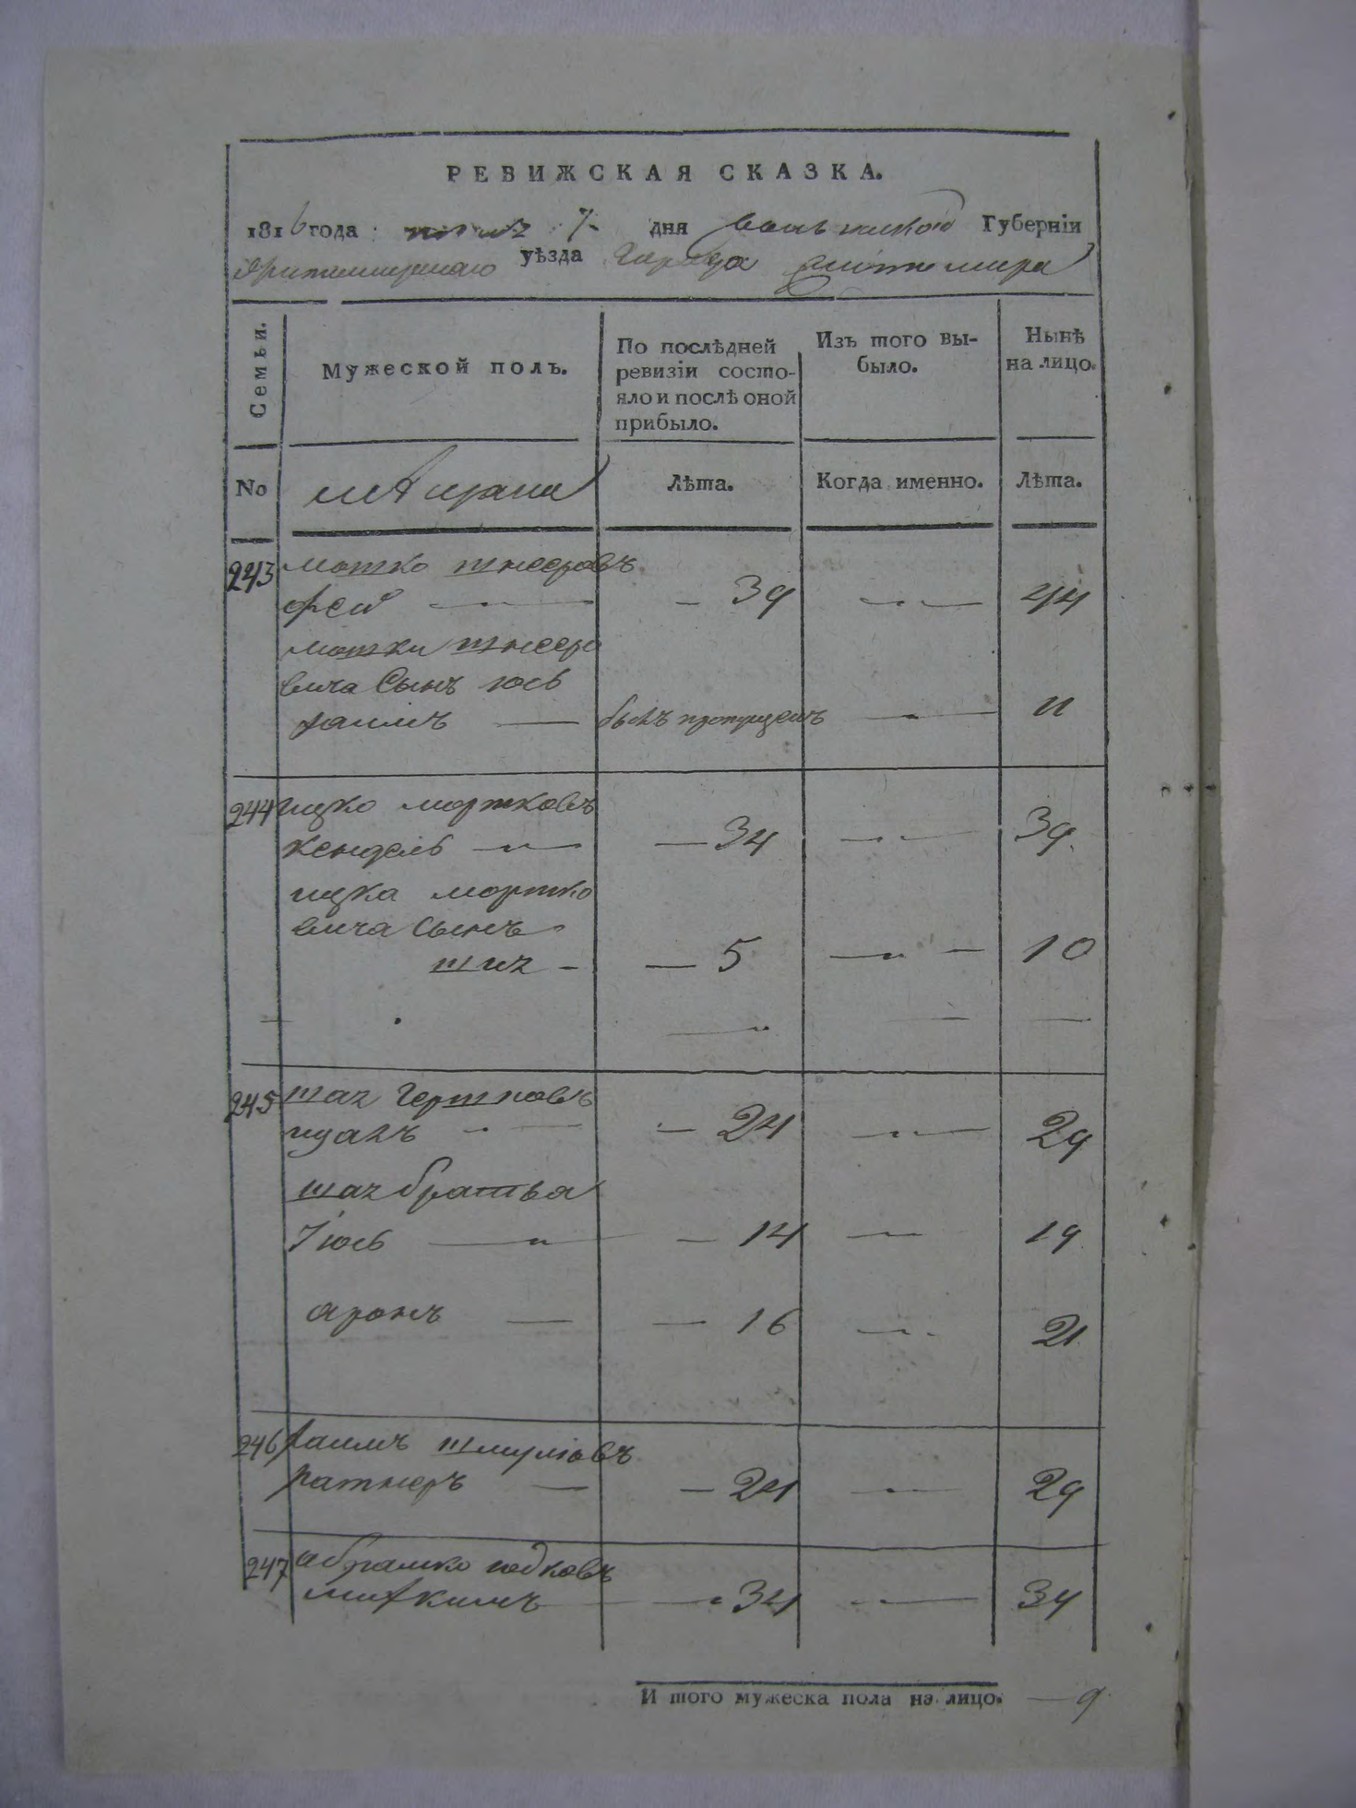 РЕВИЖСКАЯ СКАЗКА.
1816 года 7 дня Волынской Губернiи
Житомирскаго уѣзда Города Житомира
Семьи.
Мужеской полъ.
По послѣдней ревизiи состояло и послѣ оной прибыло.
Изъ того выбыло.
Нынѣ на лицо.
No
Лѣта.
Когда именно.
Лѣта.
243 мотко шнееровъ
— 39 — 44
мотки шнееро
вича Сынъ иось
хаимъ — былъ пропущенъ — 11
244 ицко мортковъ
кендель — 34 — 39
ицка мортко
вича Сынъ
— 5 — 10
245 Гершковъ
ицакъ — 24 — 29
братья
Iюсь — 14 — 19
аронъ — 16 — 21
246 хаимъ шмулювъ
ратнеръ — 24 — 29
247 абрамко юдковъ
— 34 — 39
И того мужеска пола на лицо. — 9